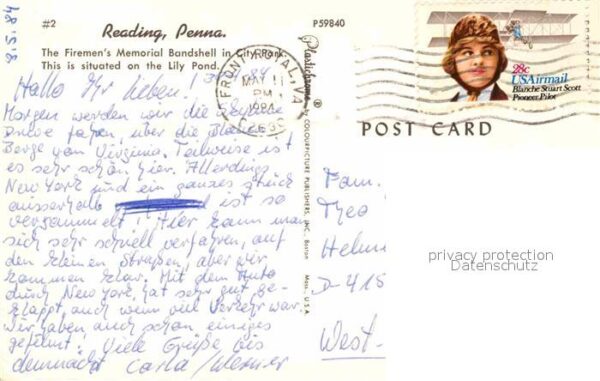 #2
Reading, Penna.
P59840
The Firemen's Memorial Bandshell in City Park.
This is situated on the Lily Pond.
Hallo Ihr Lieben!
Morgen werden wir die Skyline
Drive fahren, über die
Berge von Virginia. Teilweise ist
es sehr schön hier. Allerdings
New York und ein ganzes Stück
ausserhalb ist so
vergammelt! Hier kann man
sich sehr schnell verfahren, auf
den kleinen Straßen, aber wir
kommen klar. Mit dem Auto
durch New York, hat sehr gut ge-
klappt, auch wenn viel Verkehr war.
Wir haben auch schon einiges
gefilmt! Viele Grüße bis
demnächst Carla/Werner
Plastichrome ®
by COLOURPICTURE PUBLISHERS, INC., Boston
Mass., U.S.A.
FRONT ROYAL, VA
MAY 11
PM
1984
28c
USAirmail
Blanche Stuart Scott
Pioneer Pilot
POST CARD
Fam.
Theo
D-415
West-
privacy protection
Datenschutz